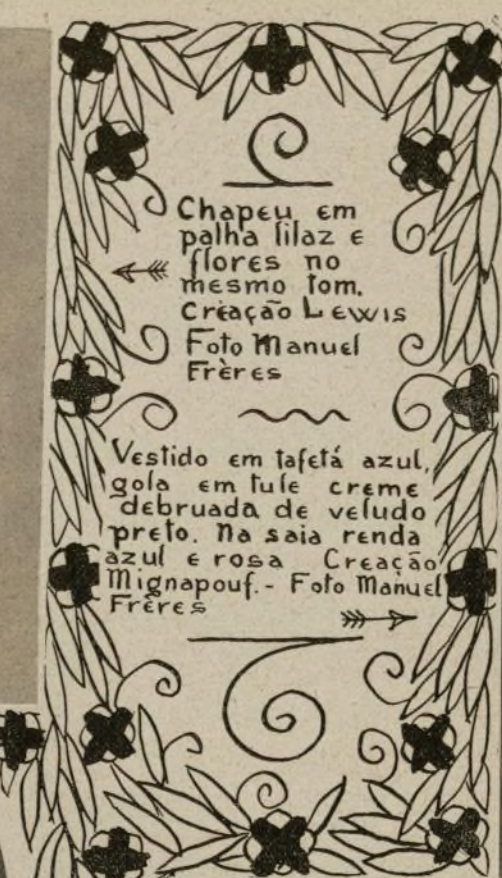 Chapeu em
palha lilaz e
flores no
mesmo tom.
Creação Lewis
Foto Manuel
Frères
Vestido em tafetá azul,
gola em tule creme
debruada de veludo
preto. Na saia renda
azul e rosa Creação
Mignapouf.- Foto Manuel
Frères